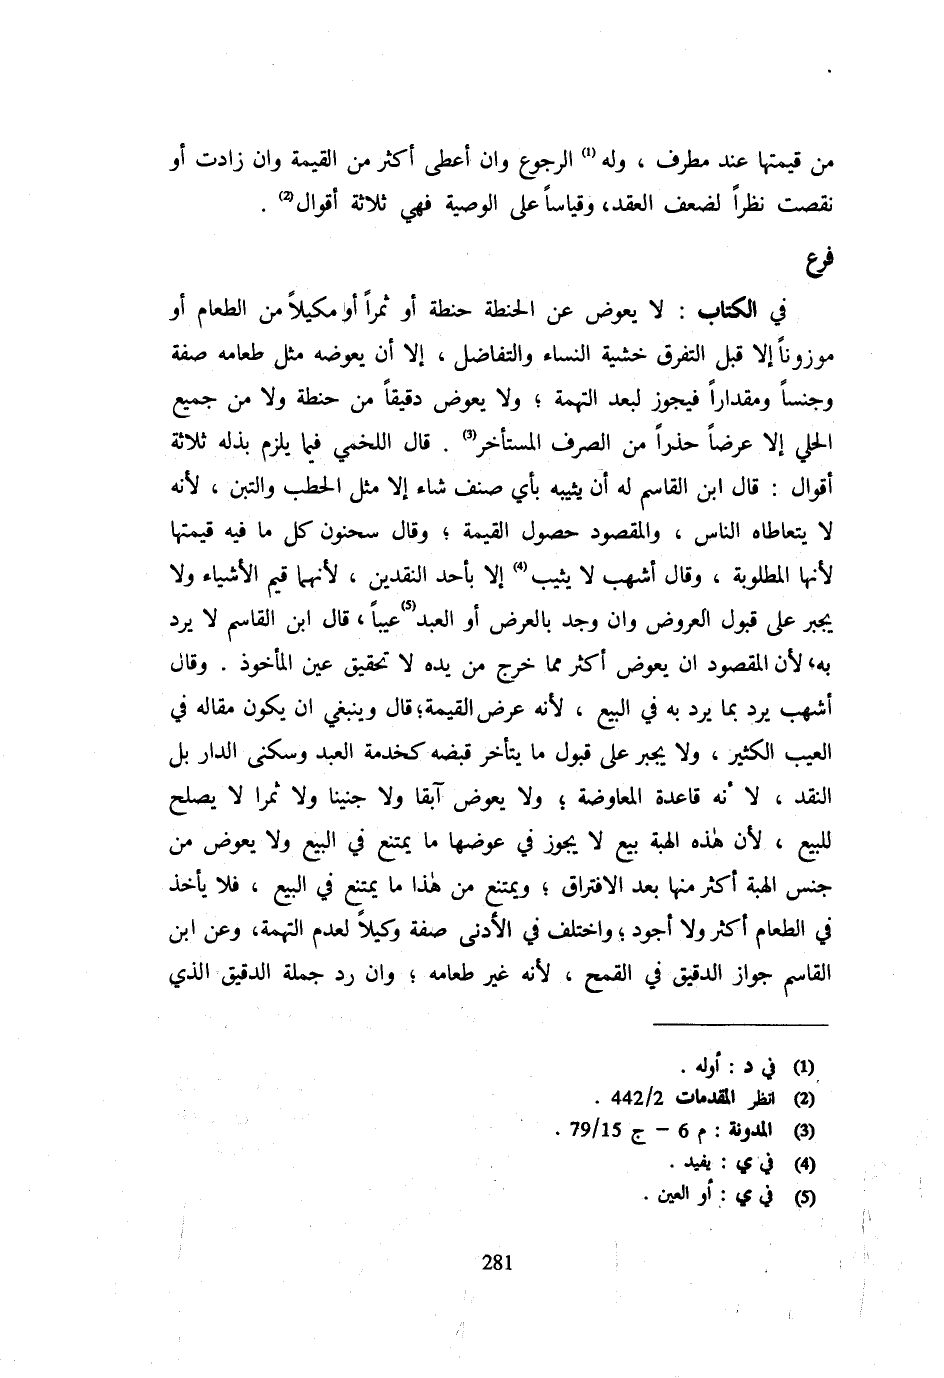 من قيمتها عند مطرف ، وله (1) الرجوع وان أعطى أكثر من القيمة وان زادت أو
نقصت نظراً لضعف العقد، وقياساً على الوصية فهي ثلاثة أقوال(2) .
فرع
في الكتاب : لا يعوض عن الحنطة حنطة أو ثمراً أو مكيلاً من الطعام أو
موزوناً إلا قبل التفرق خشية النساء والتفاضل ، إلا أن يعوضه مثل طعامه صفة
وجنساً ومقداراً فيجوز لبعد التهمة ؛ ولا يعوض دقيقاً من حنطة ولا من جميع
الحلي إلا عرضاً حذراً من الصرف المستأخر(3) . قال اللخمي فيما يلزم بذله ثلاثة
أقوال : قال ابن القاسم له أن يثيبه بأي صنف شاء إلا مثل الحطب والتبن ، لأنه
لا يتعاطاه الناس ، والمقصود حصول القيمة ؛ وقال سحنون كل ما فيه قيمتها
لأنها المطلوبة ، وقال أشهب لا يثيب(4) إلا بأحد النقدين ، لأنهما قيم الأشياء ولا
يجبر على قبول العروض وان وجد بالعرض أو العبد(5) عيباً ، قال ابن القاسم لا يرد
به، لأن المقصود ان يعوض أكثر مما خرج من يده لا تحقيق عين المأخوذ . وقال
أشهب يرد بما يرد به في البيع ، لأنه عرض القيمة؛ قال وينبغي ان يكون مقاله في
العيب الكثير ، ولا يجبر على قبول ما يتأخر قبضه كخدمة العبد وسكنى الدار بل
النقد ، لا ٔنه قاعدة المعاوضة ؛ ولا يعوض آبقا ولا جنينا ولا ثمرا لا يصلح
للبيع ، لأن هٰذه الهبة بيع لا يجوز في عوضها ما يمتنع في البيع ولا يعوض من
جنس الهبة أكثر منها بعد الافتراق ؛ ويمتنع من هٰذا ما يمتنع في البيع ، فلا يأخذ
في الطعام أكثر ولا أجود ؛ واختلف في الأدنى صفة وكيلاً لعدم التهمة، وعن ابن
القاسم جواز الدقيق في القمح ، لأنه غير طعامه ؛ وان رد جملة الدقيق الذي
(1) في د : أوله .
(2) انظر المقدمات 442/2 .
(3) المدونة : م 6 – ج 79/15 .
(4) في ي : يفيد .
(5) في ي : أو العين .
281